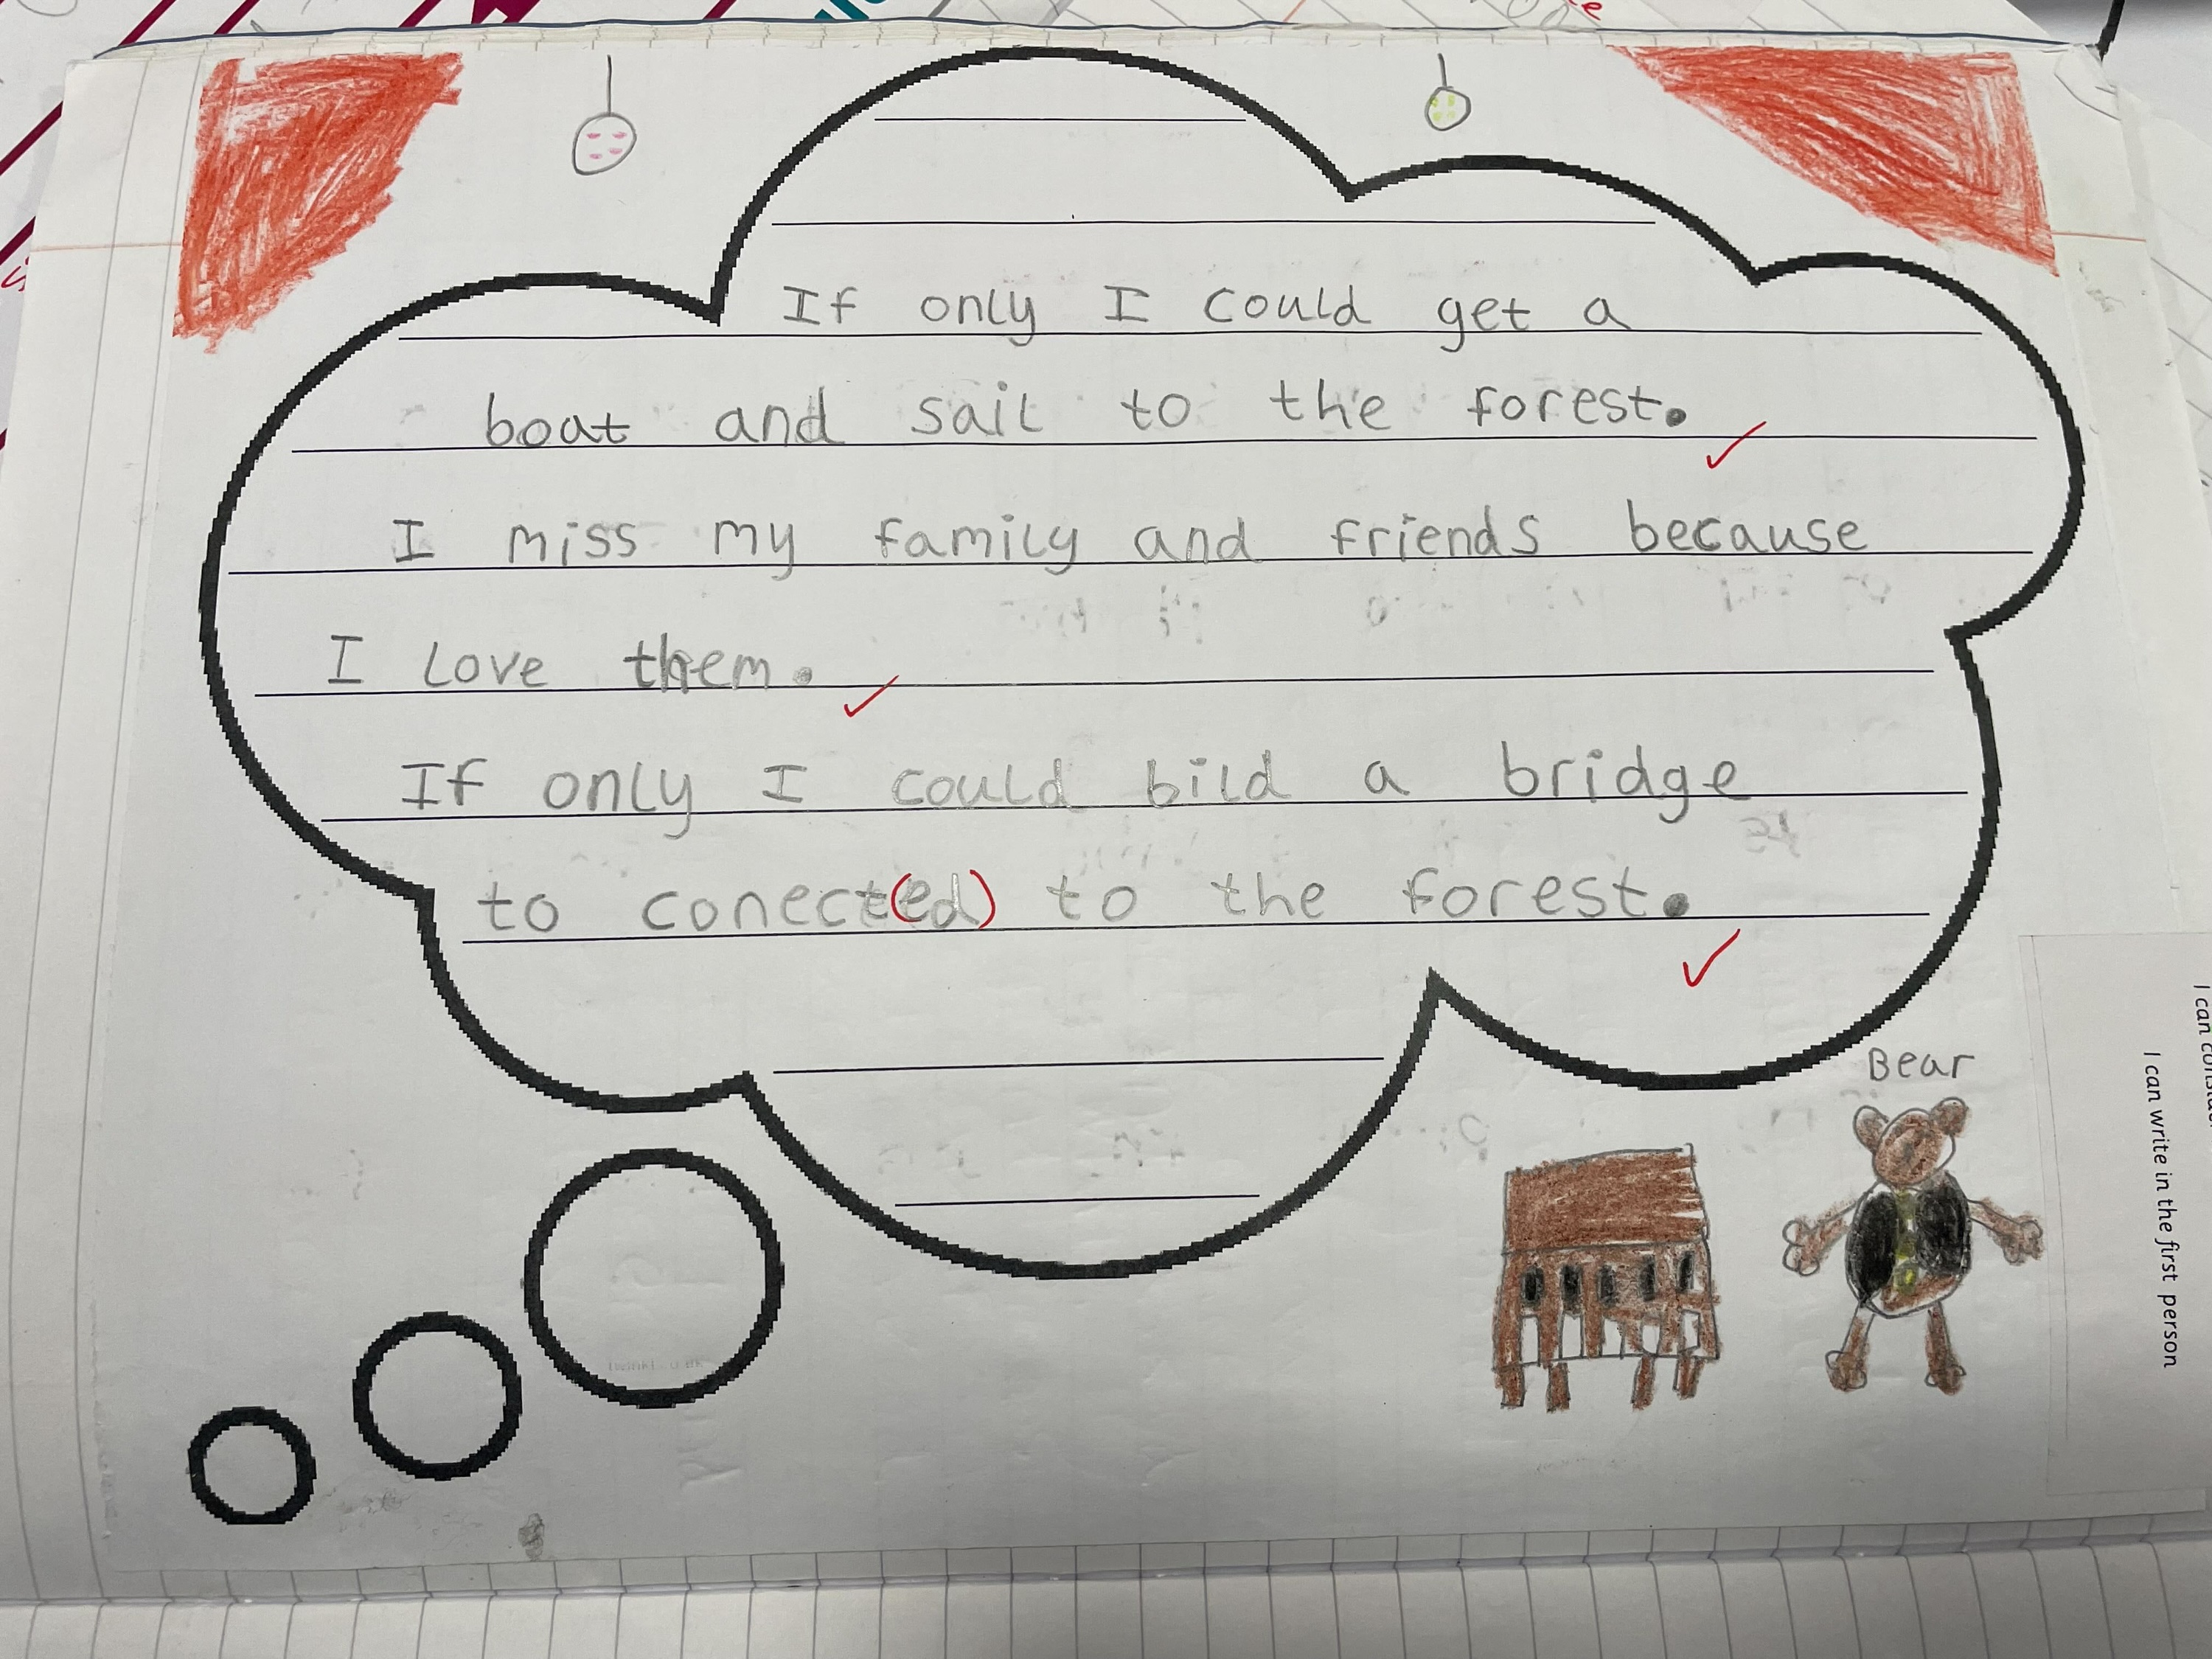 If only I could get a
boat and sail to the forest.
I miss my family and friends because
I love them.
If only I could bild a bridge
to conect(ed) to the forest.
Bear
I can write in the first person
I can